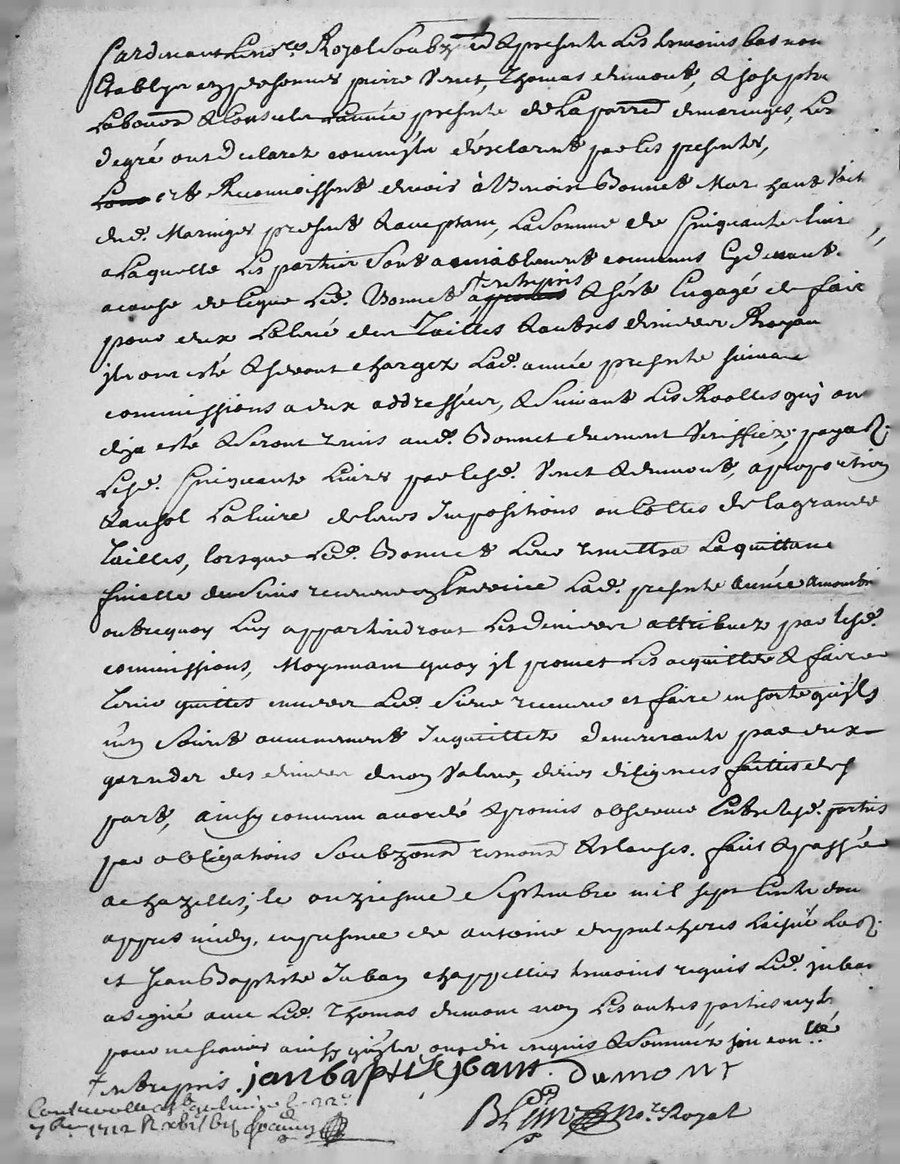 Pardevant le no.re Royal Soubzné & presents les temoins bas nom
Establys en personnes pierre Venet, Thomas dumont, & joseph
Labouré & Consuls Lannée presente de La parre de maringes, Les
degré ont declaré comme ils déclarent par les presentes,
et Reconnoissent devoir à Benoit Bonnet Mar
dud. Maringes present & acceptant, La Somme de Cinquante livr
a Laquelle Les parties Sont amiablement convenus Cydevant.
a cause de ce que Led. Bonnet entrepris & s'est Engagé de faire
pour eux La levé des Tailles & autres deniers Royau
jls ont esté & seront chargez Lad. année presente suivant
commissions a eux addressées, & Suivant Les Roolles quj on
deja esté & seront remis aud. Bonnet duement Veriffiez; payab
Lesd. Cinquante Livres par lesd. Venet & dumont, a proportion
& au sol La livre de leurs Impositions ou Cottes de la grande
Tailles, lorsque Led. Bonnet Leur remettra La quittance
finalle du Sieur receveur en Exercice Lad. presente année
outre quoy Luy appartiendront Les deniers attribuez par lesd.
commissions, Moyennant quoy jl promet Les acquitter & faire
Tenir quittes envers Led. Sieur receveur et faire en sorte qu'jls
n'en Soient aucunement Inquiettez demeurants par eux
garends des deniers de non Valeur, diligences faittes de s
part, ainsy convenu accordé & promis observer Entre lesd. parties
par obligations Soubzons renons & clauses. fait & passé
a chazelles, le onziesme Septembre mil sept Cents dou
appres midy, en presence de antoine
et Jean Baptiste Juban chappellier temoins requis Led. juban
a signé avec Led. Thomas dumont non Les autres parties
pour ne scavoir ainsy qu'jls ont dit enquis & Sommés
† entrepris janbaptiste jbant. Dumont
Controllé
7bre 1712 no.re Royal